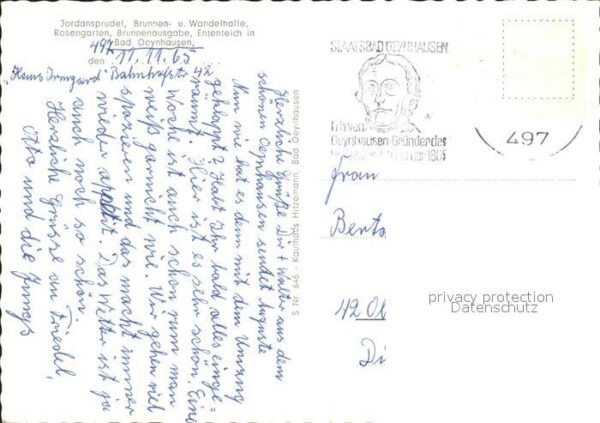 Jordansprudel, Brunnen- u. Wandelhalle,
Rosengarten, Brunnenausgabe, Ententeich in
Bad Oeynhausen,
497
den 11.11.65
"Haus Irmgard" Bahnhofstr. 42
Herzliche Grüße Dir + Walter aus dem
schönen Oeynhausen sendet Auguste
Nun wie hat es denn mit dem Umzug
geklappt? Habt Ihr bald alles einge-
räumt? Hier ist es sehr schön. Eine
Woche ist auch schon rum man
weiß garnicht wie. Wir gehen viel
spazieren und das macht immer
wieder appetit. Das Wetter ist ja
auch noch so schön.
Herzliche Grüsse an Friedel,
Otto und die Jungs
S Nr. 646 - Kaufhaus Hitzemann, Bad Oeynhausen
STAATSBAD OEYNHAUSEN
Frh. von
Oeynhausen Gründer des
497
Frau
Berta
42 Ob
Di
privacy protection
Datenschutz